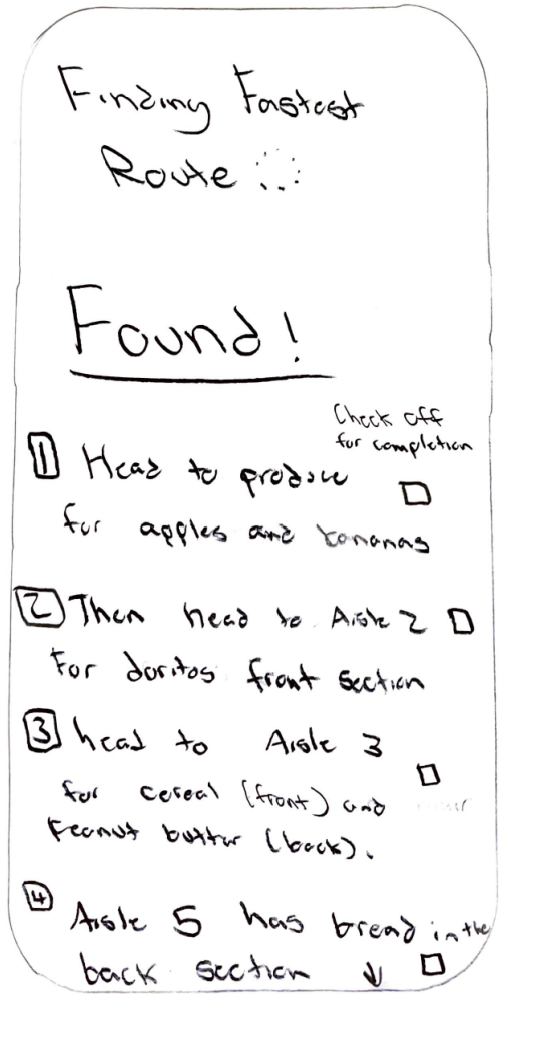 Finding Fastest
Route
Found!
Check off
for completion
1 Head to produce
for apples and bananas
2 Then head to Aisle 2
for doritos front section
3 head to Aisle 3
for cereal (front) and
Peanut butter (back).
4 Aisle 5 has bread in the
back section ↓